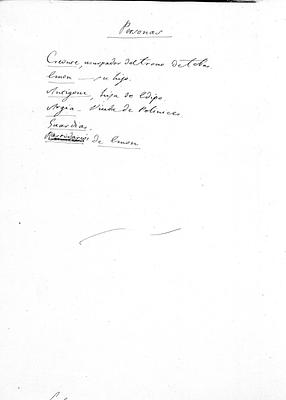 Personas
Creonte, usurpador del trono de Tebas.
Emon — su hijo.
Antigone, hija de Edipo.
Argia — Viuda de Polinices
Guardias.
de Emon